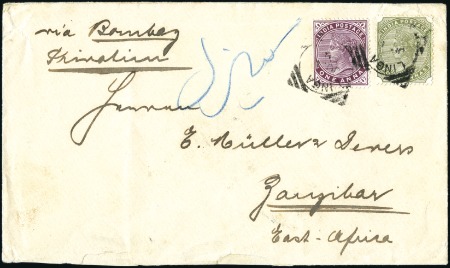 via Bombay
INDIA POSTAGE
ONE ANNA
INDIA POSTAGE
LINGA
LINGA
E. Müller & Devers
Zanzibar
East-Africa